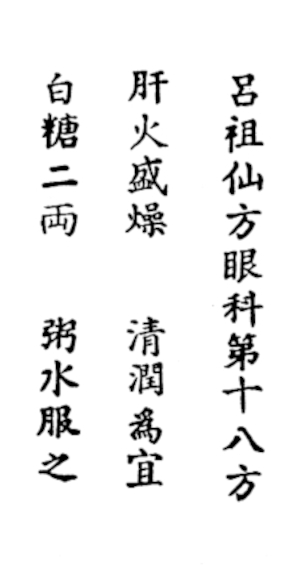 呂祖仙方眼科第十八方
肝火盛燥　清潤為宜
白糖二両　粥水服之